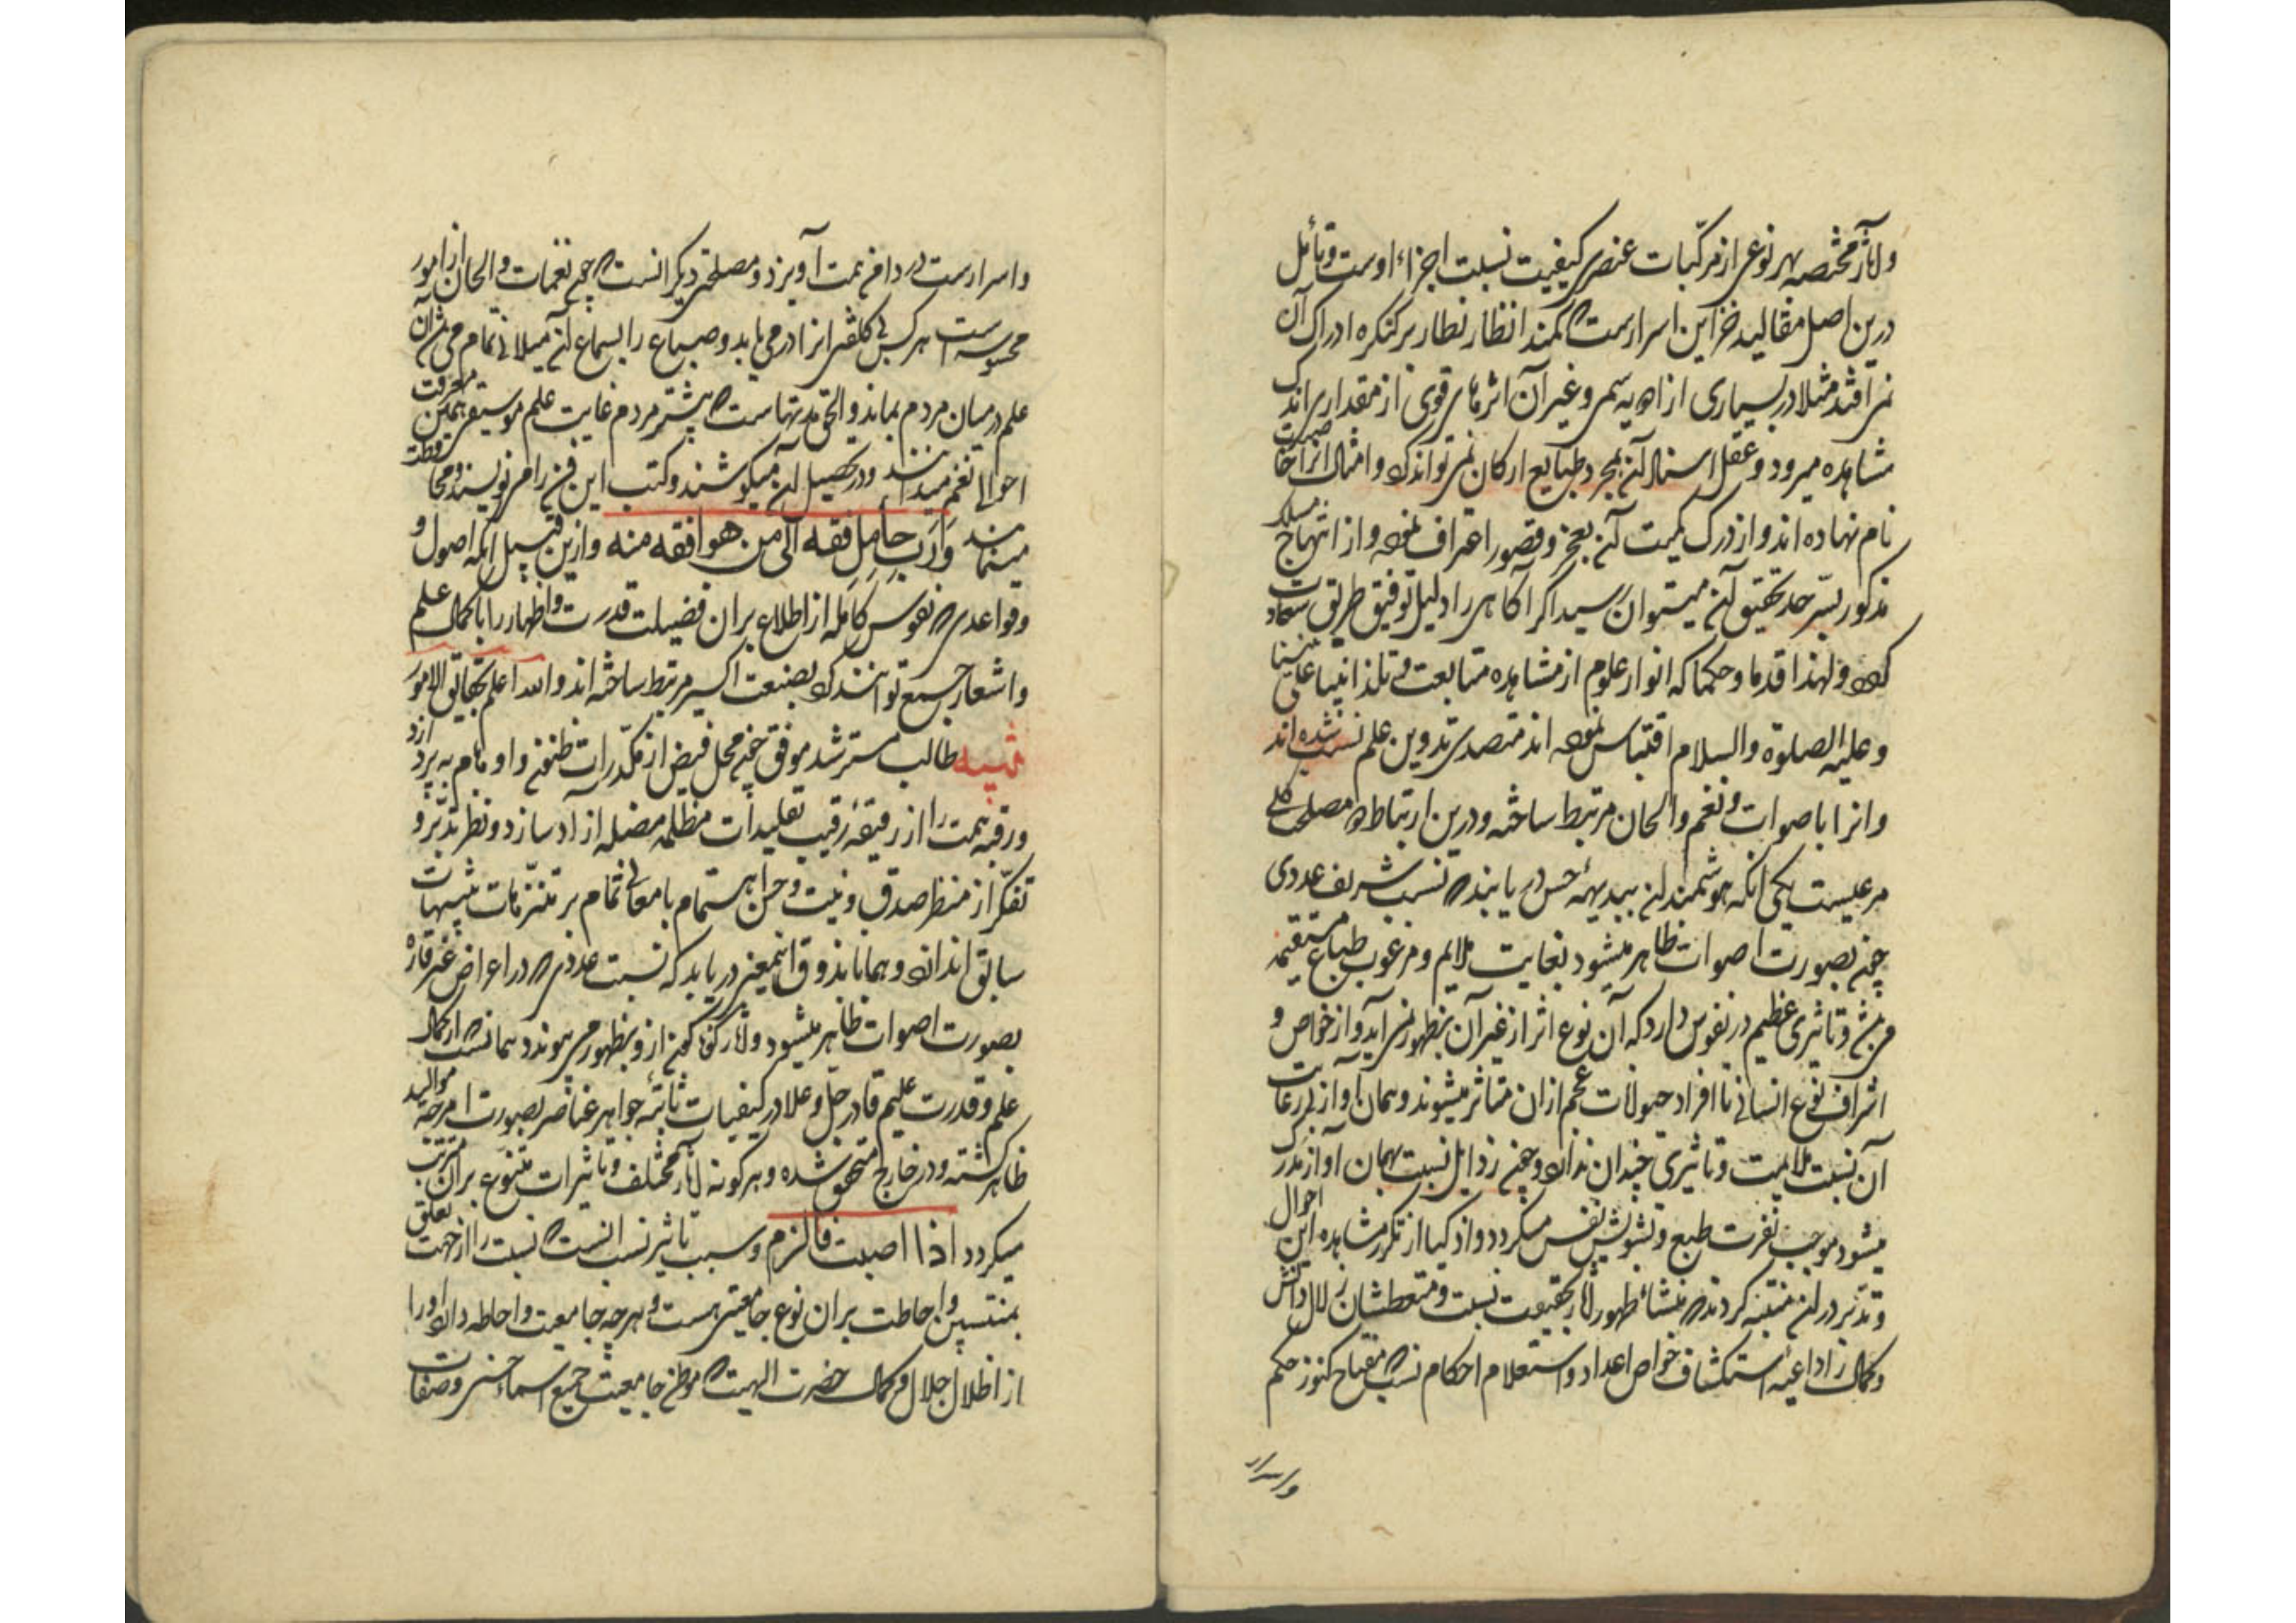 و آثار مختصه بهر نوعی از مرکّبات عنصری کیفیت نسبت اجزاء اوست و تأمل
درین اصل مقالید خزاین اسرارست که کمند انظار نظار بر کنکره ادراک آن
نمی افتد مثلا در بسیاری از ادویه سمی و غیر آن اثرهای قوی از مقداری اندک
مشاهده میرود و عقل اسناد آن بمجرد طبایع ارکان نمی تواند کرد و امثال انرا خاصیت
نام نهاده اند و از درک کمیت آن بعجز و قصور اعتراف نموده و از انتهاج مسلک
مذکور بسرحد تحقیق آن میتوان رسید اکر آکاهی را دلیل توفیق طریق سعادت
کردد و لهذا قدما و حکما که انوار علوم از مشاهده متابعت و تلمذ انبیا علی نبینا
و علیهم الصلوة والسلام اقتباس نموده اند متصدی تدوین علم نسب شده اند
و انرا با صوات و نغم و الحان مرتبط ساخته و درین ارتباط دو مصلحت کلی
مرعیست یکی آنکه هوشمندان ببدیهه حس دریابند که نسب شریف عددی
چون بصورت اصوات ظاهر میشود بغایت ملایم و مرغوب طباع مستقیمه
می باشد و تاثیری عظیم در نفوس دارد که آن نوع اثر از غیر آن بظهور نمی آید و از خواص و
اشراف نوع انسانی تا افراد حیوانات عجم ازان متاثر میشوند و همان آواز بی رعایت
آن نسبت ملایمت و تاثیری چندان ندارد و چون زوایل نسبت بهمان آواز مدرک
میشود موجب نفرت طبع و تشویش نفس میکردد و اذکیا از تکرر مشاهده این احوال
و تدبر در ان متنبه کردند که منشاء ظهور آثار بحقیقت نسبت و متعطشان زلال دانش
و کمال را داعیه استکشاف خواص اعداد و استعلام احکام نسب که مفتاح کنوز حکم
و اسرار
و اسرارست در دامن همت آویزد و مصلحتی دیکر انست که چون نغمات و الحان از امور
محسوسه است هر کس بی کلفتی انرا درمی یابد و طباع را بسماع آن میلانی تمام می باشد آن
علم در میان مردم بماند و الحق مدتهاست که بیشتر مردم غایت علم موسیقی همین معرفت
احوال نغم میدانند و در تحصیل آن میکوشند و کتب این فن را می نویسند و محافظت
مینمایند و ربّ حامل فقه الی من هو افقه منه و ازین قبیل آنکه اصول و
قواعدی که نفوس کامله از اطلاع بران فضیلت قدرت و اظهار را با کمال علم
و اشعار جمع توانند کرد بصنعت اکسیر مرتبط ساخته اند و الله اعلم بحقایق الامور
تنبیه طالب مسترشد موفق چون محل فیض از مکدّرات ظنون و اوهام بپردازد
و رقبه همت را از ربقه رقیت تقلیدات مظلمه مضله آزاد سازد و نظر تدبّر و
تفکّر از منظر صدق و نیت و حسن اهتمام با معانی تمام بر متنزهات تنبیهات
سابق اندازد و همانا بذوق اینمعنی دریابد که نسبت عددی که در اعراض غیر قاره
بصورت اصوات ظاهر میشود و آثار کوناکون ازو بظهور می پیوندد همانست که از کمال
علم و قدرت علیم قادر جل و علا در کیفیات ثابته جواهر عناصر بصورت امزجه موالید
ظاهر کشته و در خارج متحقق شده و هر کونه آثار مختلف و تاثیرات متنوع بران مترتب
میکردد اذا اصبت فالزم و سبب تاثیر نسب انست که نسبت را از جهت تعلق
بمنتسبین و احاطت بران نوع جامعیتی هست و هر چه جامعیت و احاطه دارد او را
از اظلال جلال و کمال حضرت الهیت که موطن جامعیت جمیع اسماء حسنی و صفات